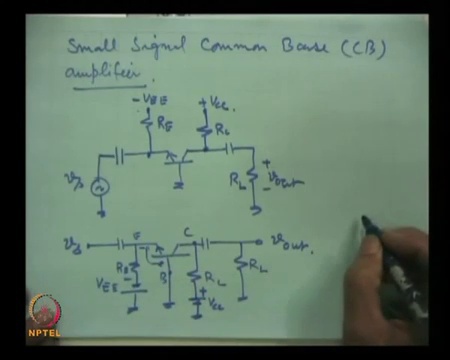 Small Signal Common Base (CB)
amplifier.
-VEE +VCC
RE RC
Vs
RL + Vout -
Vs E C Vout.
RE B RL RL
VEE - + VCC
NPTEL